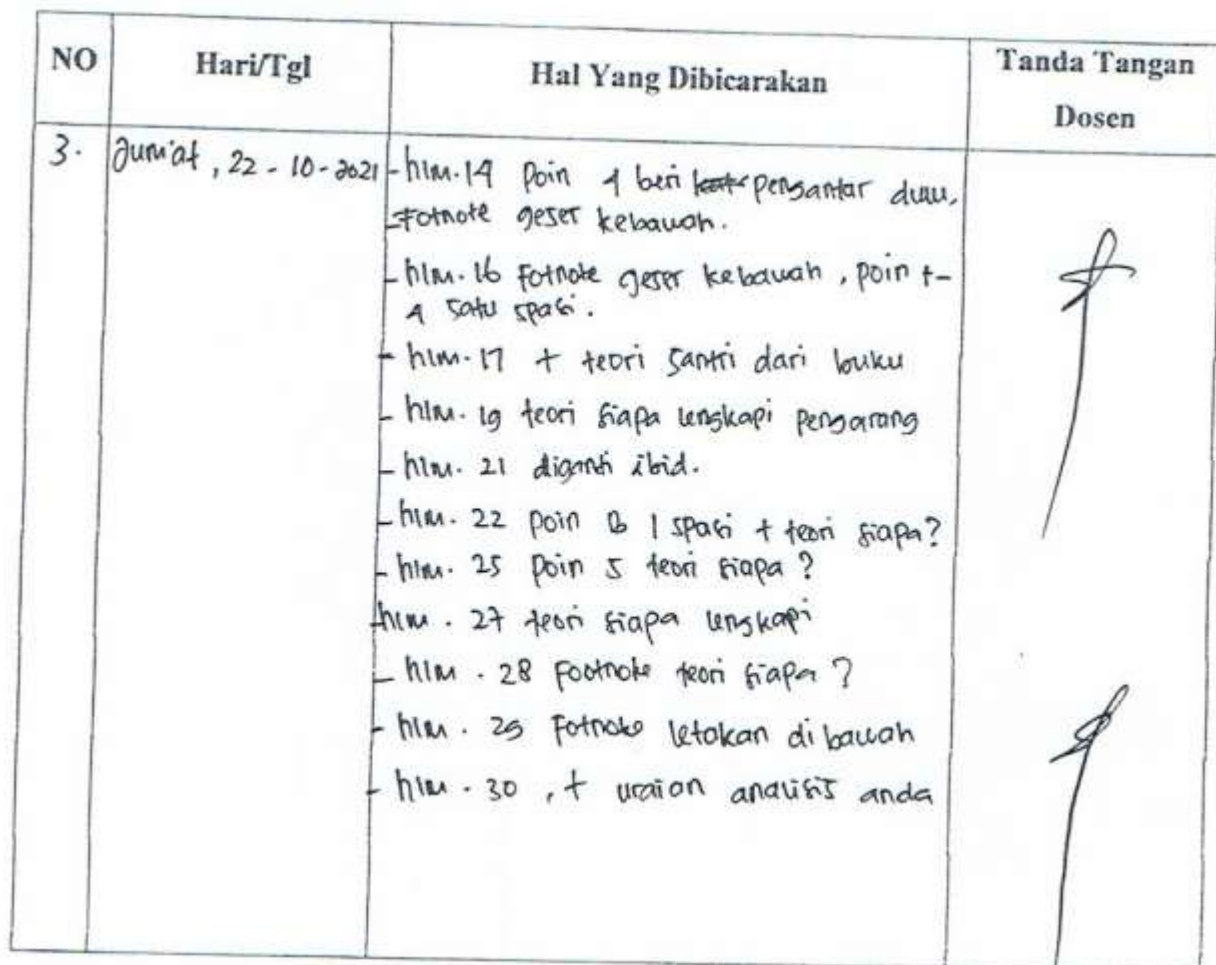 NO Hari/Tgl Hal Yang Dibicarakan Tanda Tangan
Dosen
3. Jum'at, 22-10-2021 - hlm. 14 Poin 4 beri pengantar dulu,
Fotnote geser kebawah.
- hlm. 16 Fotnote geser kebawah, poin +-
4 satu spasi.
- hlm. 17 + teori santri dari buku
- hlm. 19 teori siapa lengkapi pengarang
- hlm. 21 diganti ibid.
- hlm. 22 poin B 1 spasi + teori siapa?
- hlm. 25 Poin 5 teori siapa?
hlm. 27 teori siapa lengkapi
- hlm. 28 Footnote teori siapa?
- hlm. 29 Fotnote letakan di bawah
- hlm. 30, + uraian analisis anda